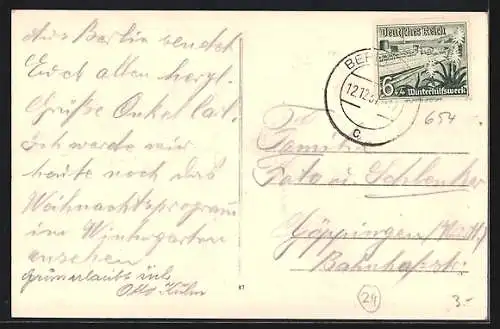 Aus Berlin sendet
Euch allen herzl.
Grüße Onkel Carl.
Ich werde mir
heute noch das
Weihnachtsprogramm
im Wintergarten
ansehen
Otto Kühn
Deutsches Reich
6+4 Winterhilfswerk
BER
12.12.37
C
654
Familie
Fata u. Schlenker
Göppingen (Württ.)
Bahnhofstr.
24
3.-